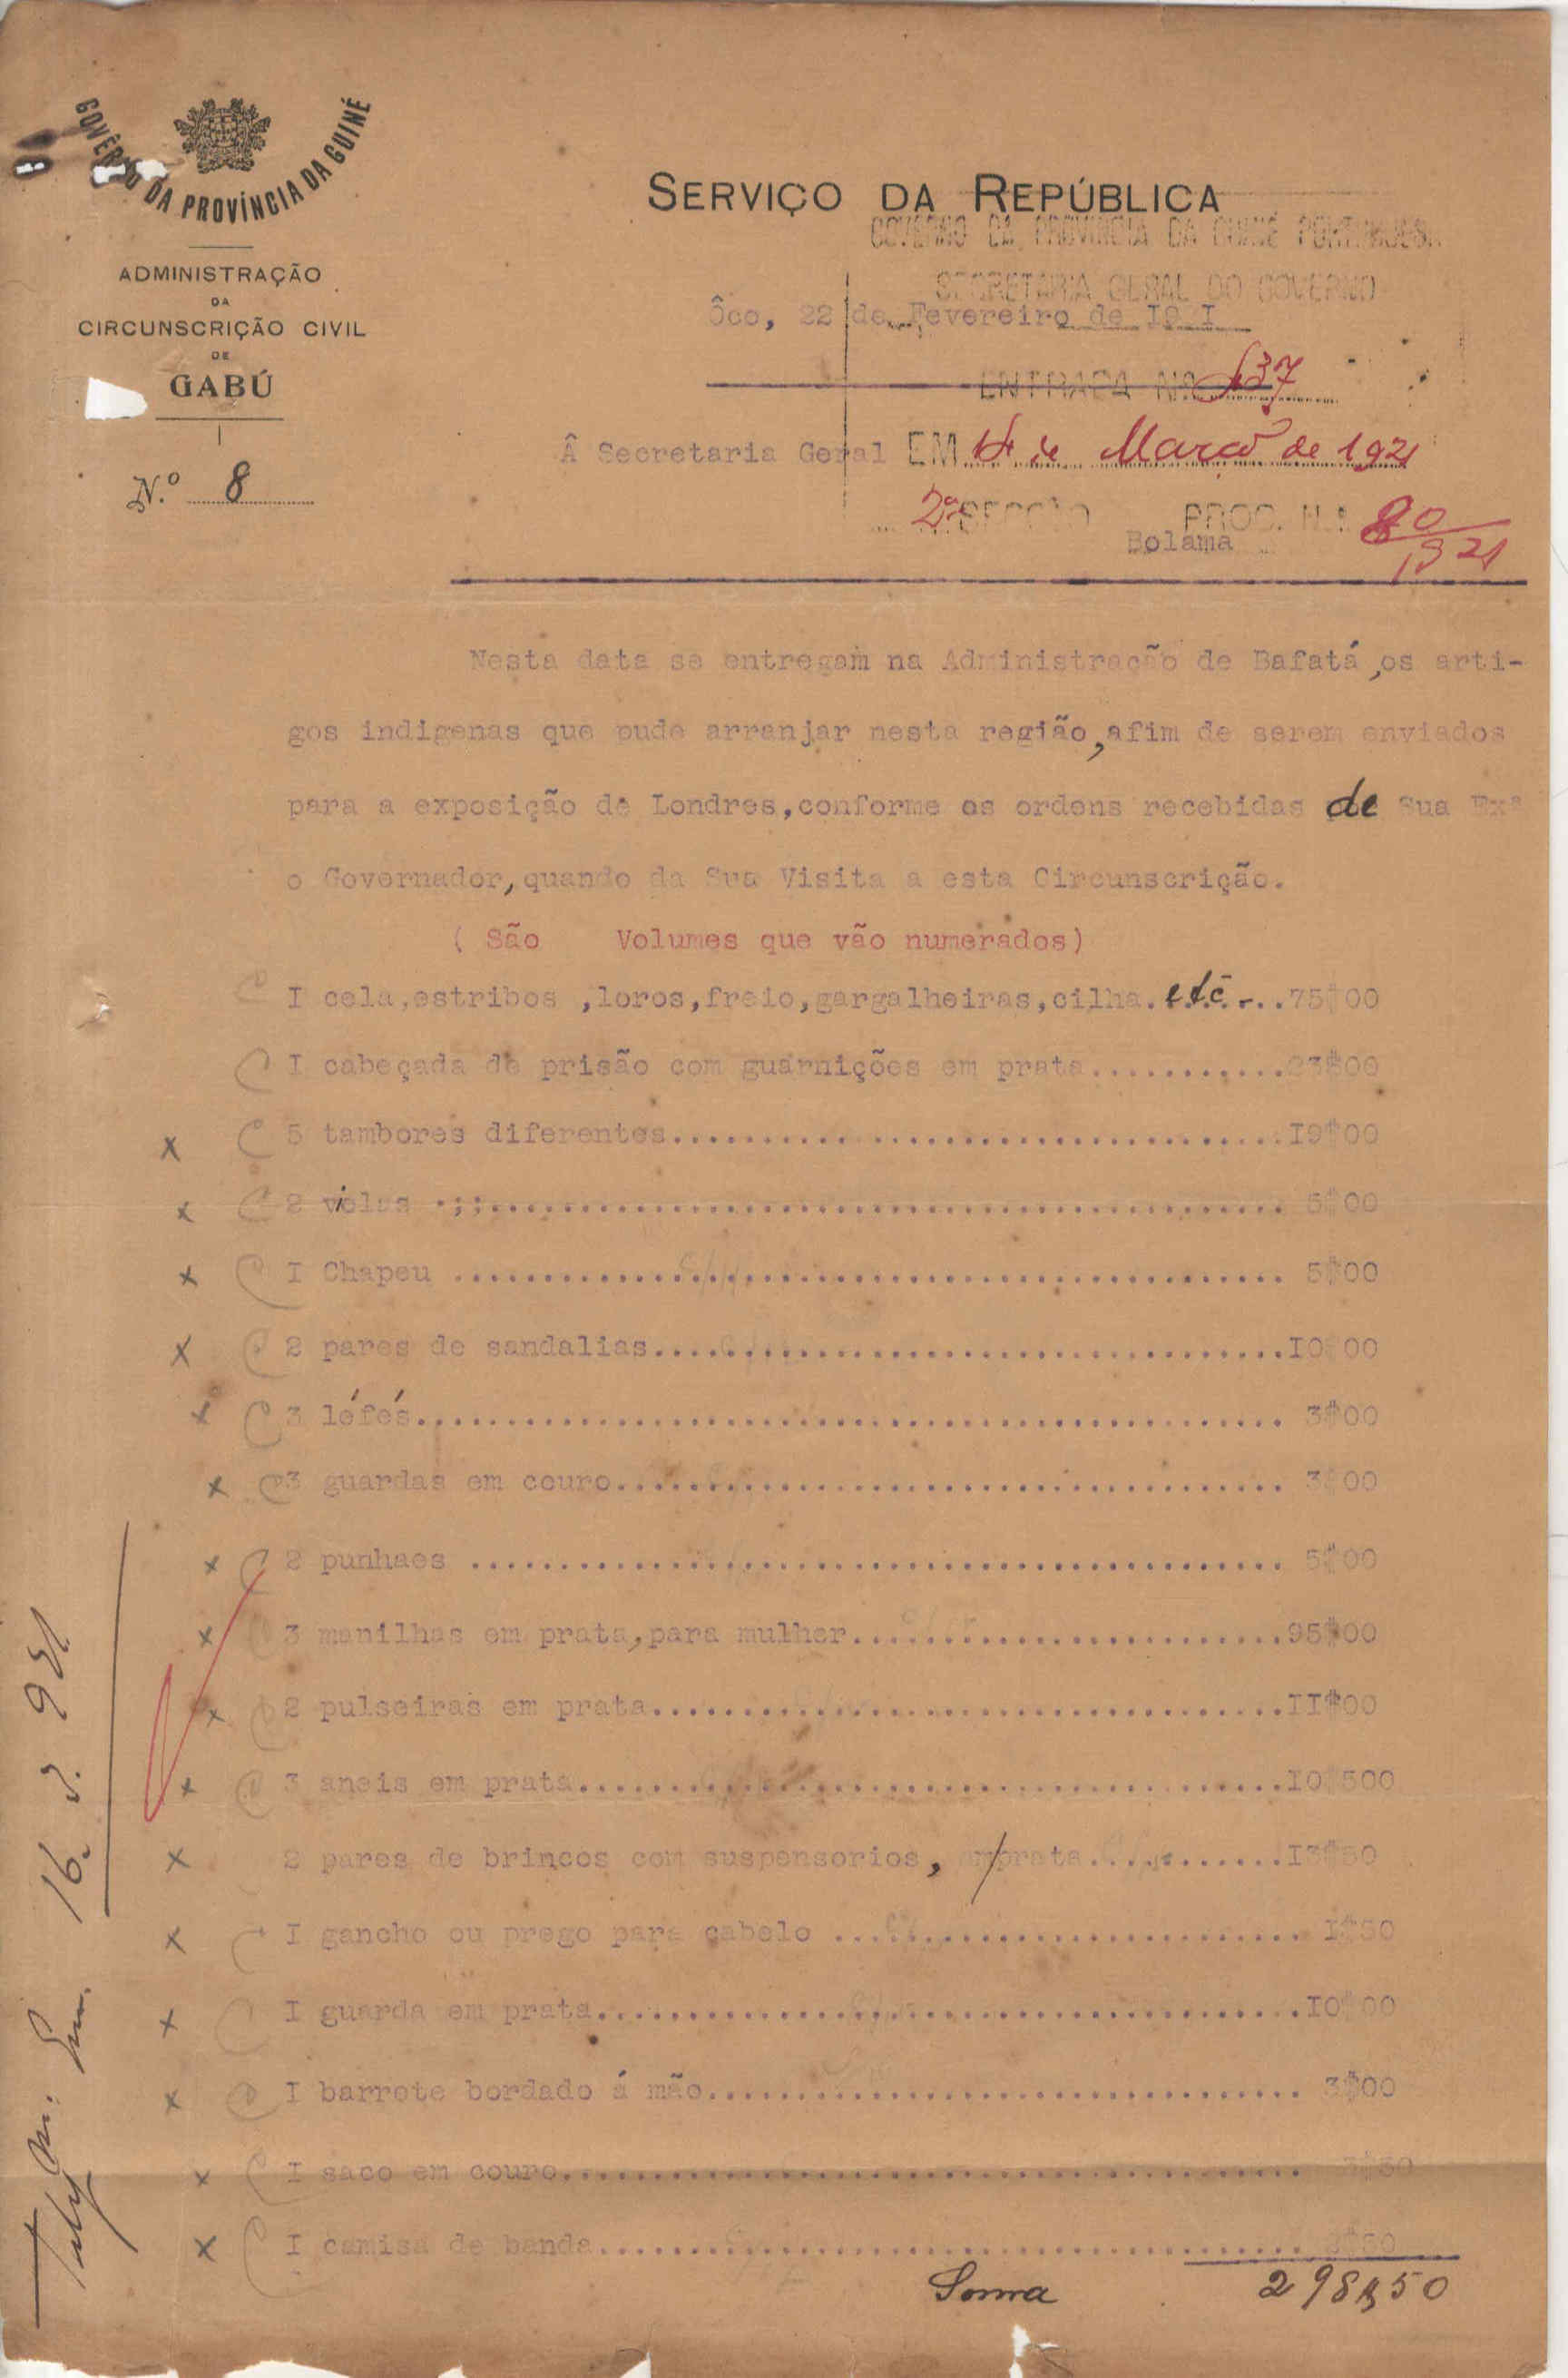 GOVÊRNO DA PROVÍNCIA DA GUINÉ
ADMINISTRAÇÃO
DA
CIRCUNSCRIÇÃO CIVIL
DE
GABÚ
N.º 8
SERVIÇO DA REPÚBLICA
GOVERNO DA PROVINCIA DA GUINÉ PORTUGUESA
SECRETARIA GERAL DO GOVERNO
Ôco, 22 de Fevereiro de I92I
ENTRADA Nº 637
Â Secretaria Geral
EM 14 de Março de 1921
2ª SECÇÃO PROC. N.º 80/921
Bolama
Nesta data se entregam na Administração de Bafatá,os arti-
gos indigenas que pude arranjar nesta região,afim de serem enviados
para a exposição de Londres,conforme as ordens recebidas de Sua Exª
o Governador,quando da Sua Visita a esta Circunscrição.
( São Volumes que vão numerados)
I cela,estribos ,loros,freio,gargalheiras,cilha.etc-..75$00
I cabeçada de prisão com guarnições em prata...........23$00
5 tambores diferentes..................................I9$00
2 violas .;;............................................ 5$00
I Chapeu .............................................. 5$00
2 pares de sandalias...................................I0$00
3 léfés................................................ 3$00
3 guardas em couro..................................... 3$00
2 punhaes ............................................. 5$00
3 manilhas em prata,para mulher........................95$00
2 pulseiras em prata...................................II$00
3 aneis em prata.......................................I0$500
2 pares de brincos com suspensorios, em prata...........I3$50
I gancho ou prego para cabelo .......................... I$50
I guarda em prata.......................................I0$00
I barrete bordado á mão................................. 3$00
I saco em couro......................................... 3$50
I camisa de banda....................................... $50
Soma 298$50
16. 3. 921